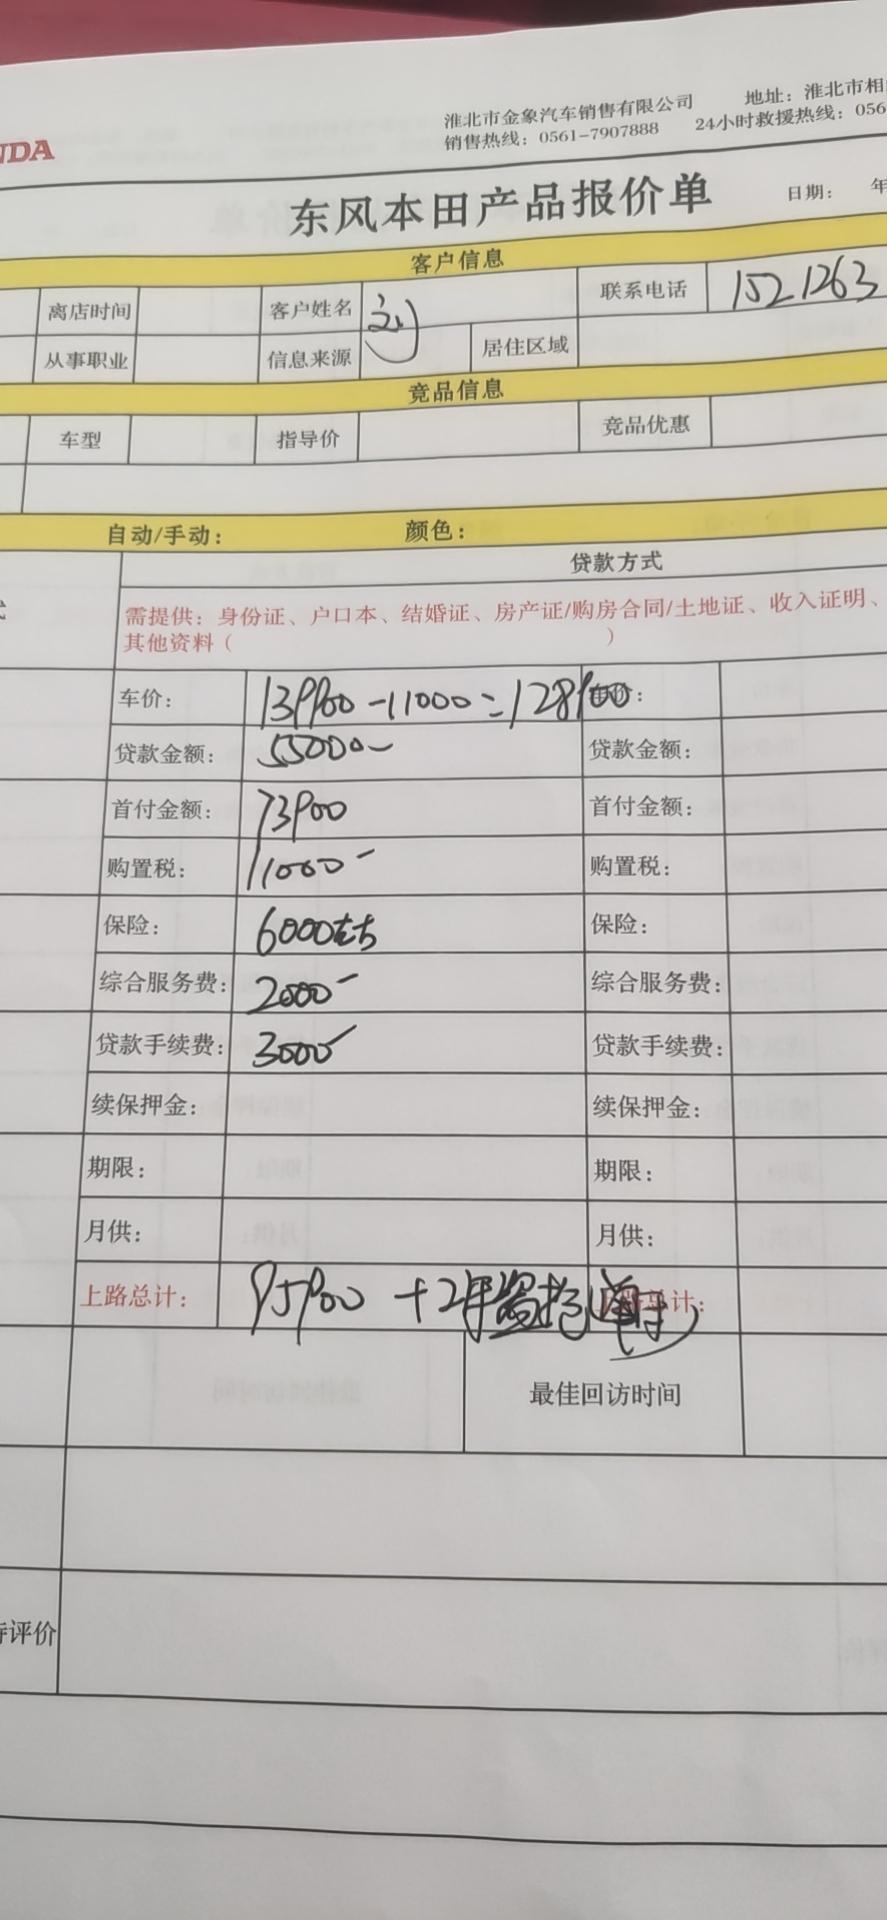 NDA
淮北市金象汽车销售有限公司 地址：淮北市相
销售热线：0561-7907888 24小时救援热线：056
东风本田产品报价单 日期： 年
客户信息
离店时间 客户姓名 刘 联系电话 1521263
从事职业 信息来源 居住区域
竞品信息
车型 指导价 竞品优惠
自动/手动： 颜色：
贷款方式
需提供：身份证、户口本、结婚证、房产证/购房合同/土地证、收入证明、
其他资料（ ）
车价： 139900-11000=128900 车价：
贷款金额： 55000 贷款金额：
首付金额： 73900 首付金额：
购置税： 11000 购置税：
保险： 6000左右 保险：
综合服务费： 2000 综合服务费：
贷款手续费： 3000 贷款手续费：
续保押金： 续保押金：
期限： 期限：
月供： 月供：
上路总计： 95900 +2年 上路总计：
最佳回访时间
待评价